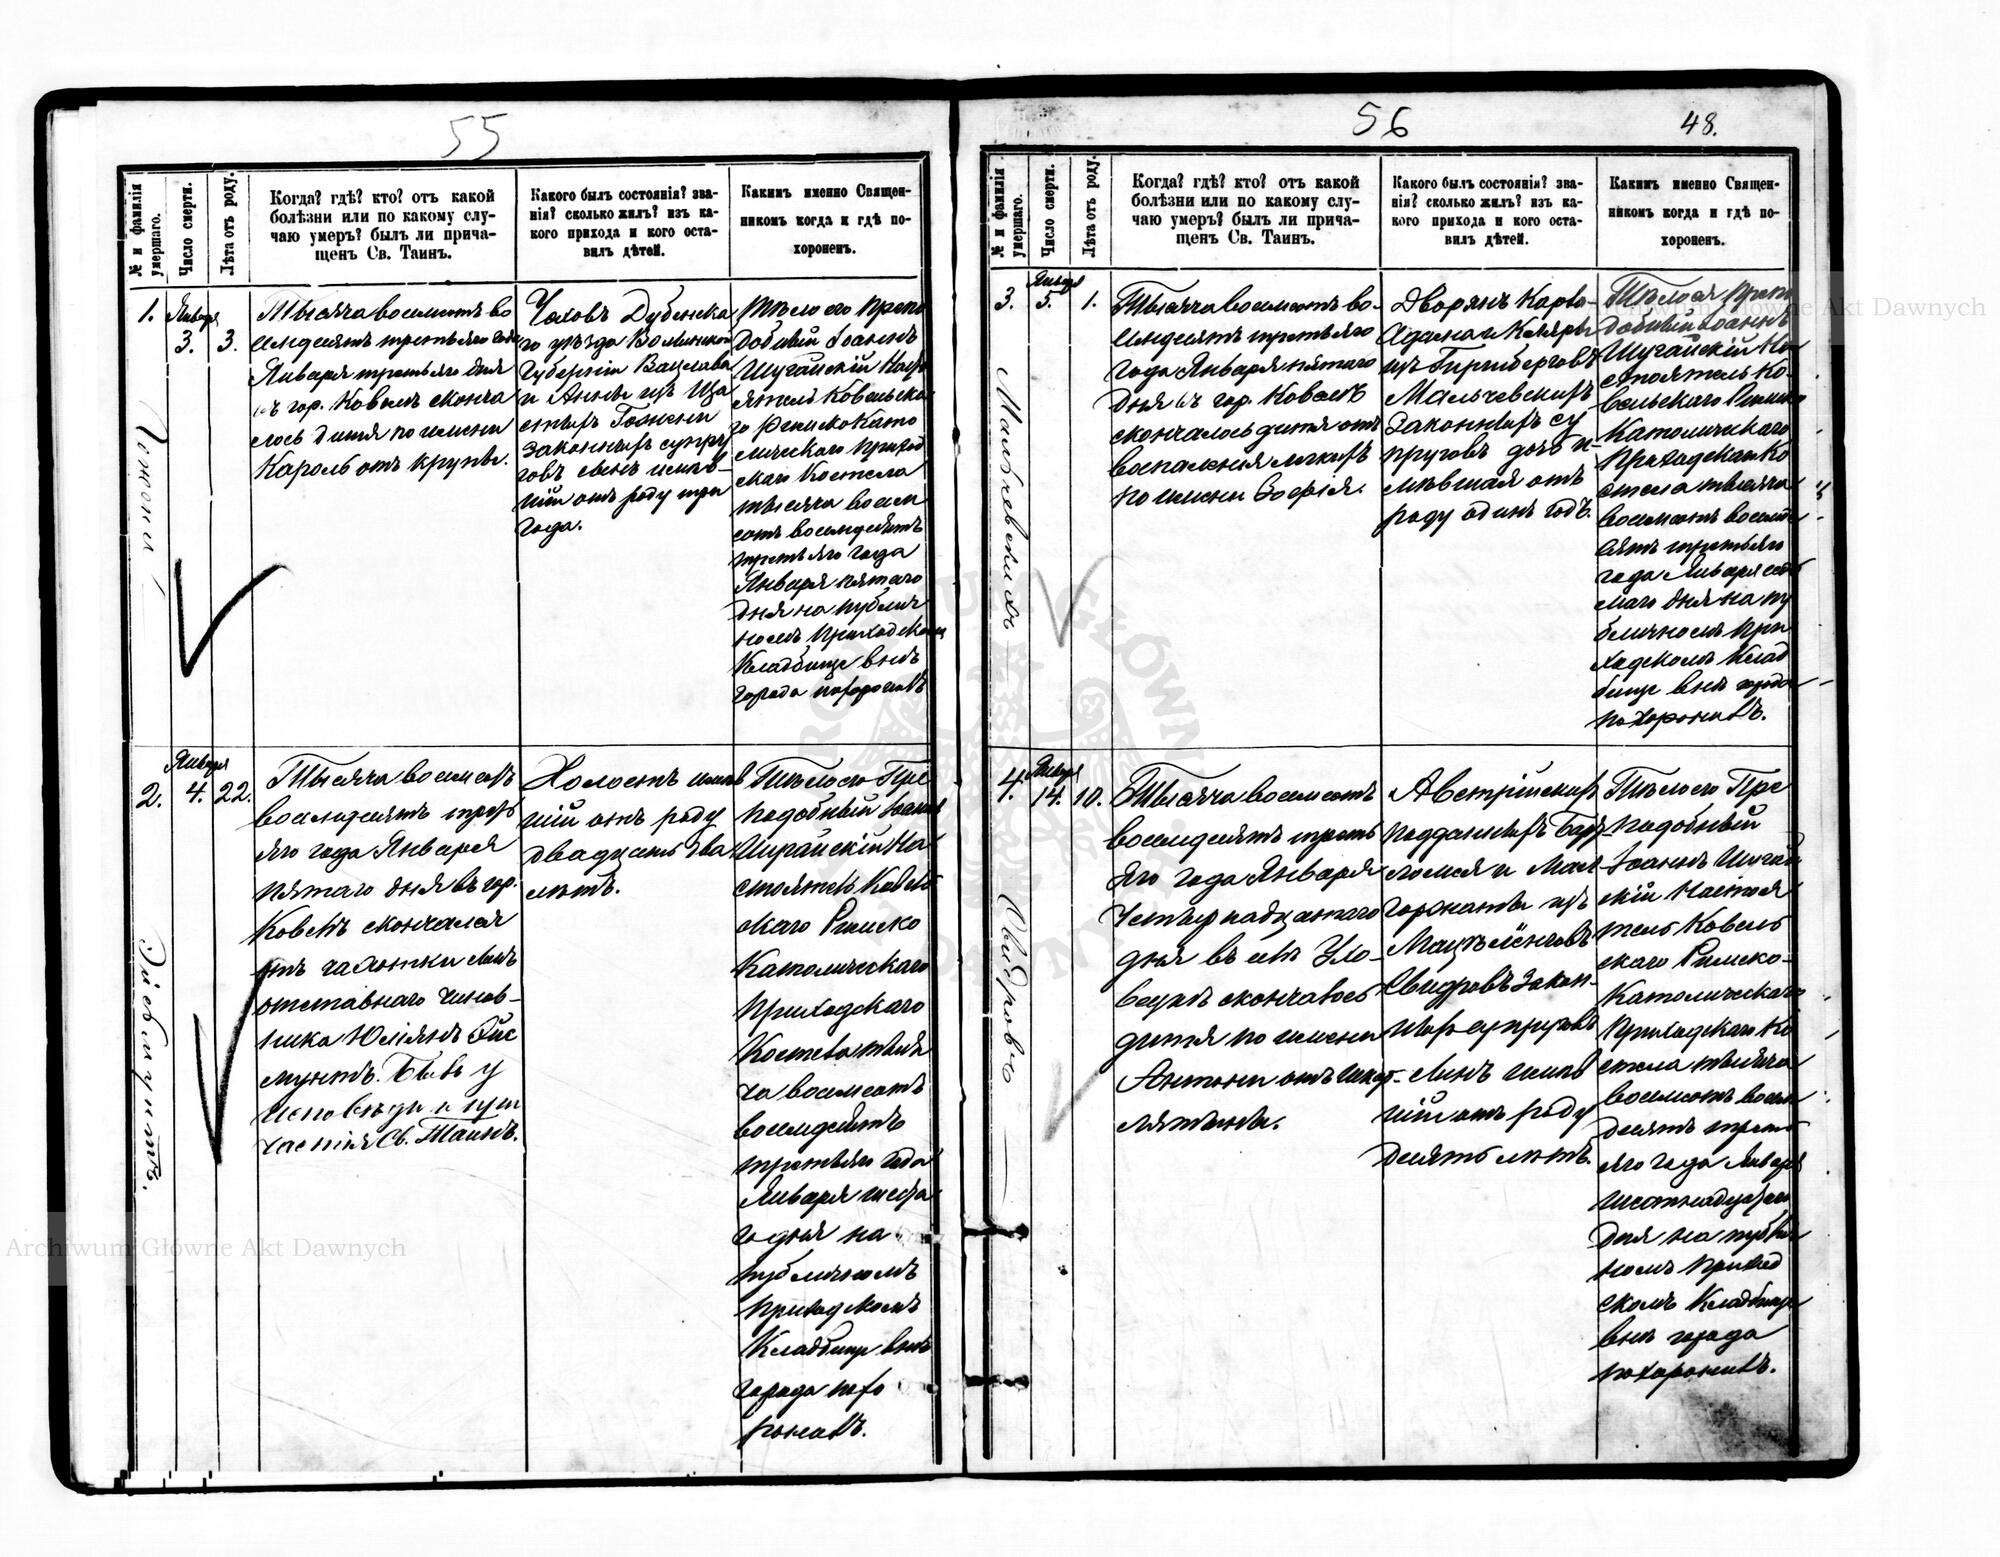 55
№ и фамилія умершаго.
Число смерти.
Лѣта отъ роду.
Когда? гдѣ? кто? отъ какой
болѣзни или по какому слу-
чаю умеръ? былъ ли прича-
щенъ Св. Таинъ.
Какого былъ состоянія? зва-
нія? сколько жилъ? изъ ка-
кого прихода и кого оста-
вилъ дѣтей.
Какимъ именно Священ-
никомъ когда и гдѣ по-
хороненъ.
1.
Января
3.
3.
Тысяча восемьсотъ во
семьдесятъ третьяго года
Января третьяго дня
въ гор. Ковелѣ сконча
лось дитя по имени
Кароль отъ крупы.
Чеховъ Дубенска
го уѣзда Волынской
Губерніи Вацлава
и Анны изъ
законныхъ супру
говъ сынъ имѣв-
шій отъ роду три
года.
Тѣло его Препо
добный Іоаннъ
Шугайскій Насто
ятель Ковельска
го Римско Като
лическаго Приход
скаго Костела
тысяча восемь
сотъ восемдесятъ
третьяго года
Января пятаго
дня на публич
номъ Приходскомъ
Кладбище внѣ
города похоронилъ
2.
Января
4.
22.
Дисмунтъ.
Тысяча восемсотъ
восемдесятъ треть
яго года Января
пятаго дня въ гор.
Ковелѣ скончался
отъ чахотки сынъ
отставнаго чинов-
ника Юліянъ Дис
мунтъ. Бывъ у
исповѣди и при
частія Св. Таинъ.
Холостъ имѣв
шій отъ роду
двадцать два
лѣтъ.
Тѣло его Пре
подобный Іоаннъ
Шугайскій На
стоятель Ковель
скаго Римско
Католическаго
Приходскаго
Костела тыся
ча восемсотъ
восемдесятъ
третьяго года
Января шеста
го дня на
публичномъ
Приходскомъ
Кладбище внѣ
города похо
ронилъ.
56
48.
№ и фамилія умершаго.
Число смерти.
Лѣта отъ роду.
Когда? гдѣ? кто? отъ какой
болѣзни или по какому слу-
чаю умеръ? былъ ли прича-
щенъ Св. Таинъ.
Какого былъ состоянія? зва-
нія? сколько жилъ? изъ ка-
кого прихода и кого оста-
вилъ дѣтей.
Какимъ именно Священ-
никомъ когда и гдѣ по-
хороненъ.
3.
Января
5.
1.
Мальчевскихъ
Тысяча восемсотъ во-
семдесятъ третьяго
года Января пятаго
дня въ гор. Ковелѣ
скончалось дитя отъ
воспаленія легкихъ
по имени Зофія.
Дворянъ
Адама и Клары
изъ Гринберговъ
Мальчевскихъ
законныхъ су
пруговъ дочь и-
мѣвшая отъ
роду одинъ годъ.
Тѣло ея Препо
добный Іоаннъ
Шугайскій На
стоятель Ко
вельскаго Римско
Католическаго
Приходскаго Ко
стела тысяча
восемсотъ восемде
сятъ третьяго
года Января седь
маго дня на пу
бличномъ При
ходскомъ Клад
бище внѣ города
похоронилъ.
4.
Января
14.
10.
Свидровъ
Тысяча восемсотъ
восемдесятъ треть
яго года Января
четырнадцатаго
дня въ
скончалось
дитя по имени
Антони отъ
Австрійскихъ
подданныхъ Барѳ
ломея и Мал
горжаты изъ
Свидровъ закон-
ныхъ супруговъ
сынъ имѣв
шій отъ роду
десять лѣтъ.
Тѣло его Пре
подобный
Іоаннъ Шугай
скій Настоя
тель Ковель
скаго Римско-
Католическаго
Приходскаго Ко
стела тысяча
восемсотъ восем
десятъ треть
яго года Января
шестнадцатаго
дня на публич
номъ Приход
скомъ Кладбище
внѣ города
похоронилъ.
Archiwum Główne Akt Dawnych
Archiwum Główne Akt Dawnych